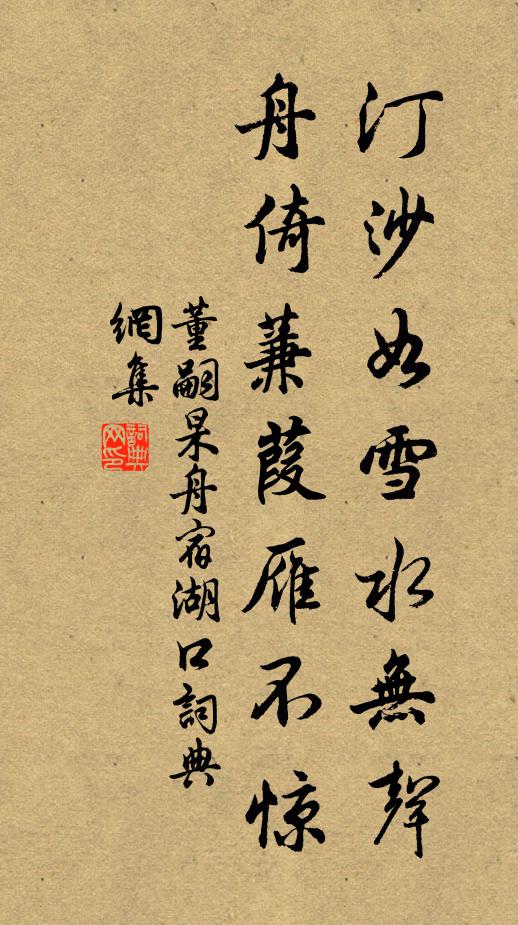 汀沙如雪水無聲
舟倚蒹葭雁不惊
董嗣杲舟宿湖口詞典
網集
詞典網印